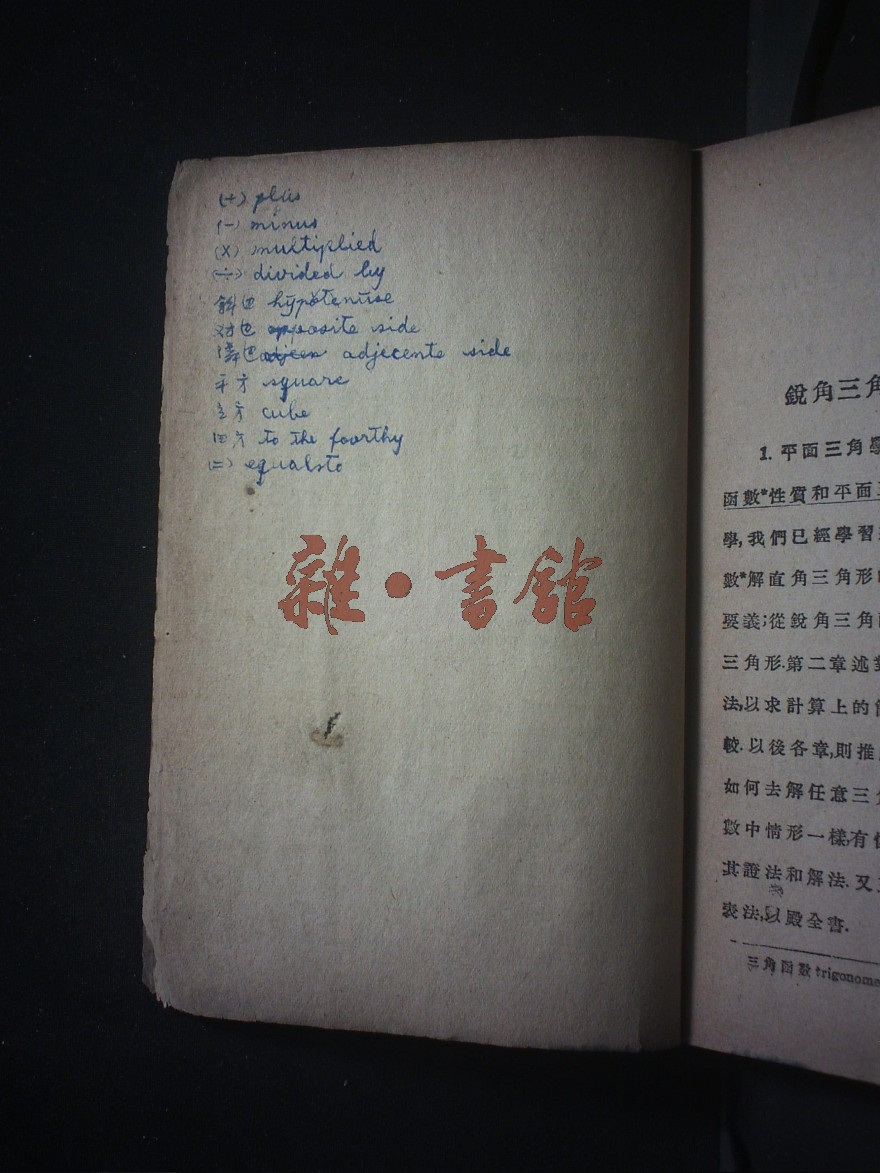 (+) plus
(−) minus
(×) multiplied
(÷) divided by
斜边 hypotenuse
对边 opposite side
隣边 adjecente side
平方 square
立方 cube
四方 to the fourthy
(=) equalsto
雜•書館
銳角三角
1. 平面三角學
函數*性質和平面三
學,我們已經學習
數*解直角三角形
要義;從銳角三角
三角形.第二章述
法,以求計算上的
較.以後各章,則推
如何去解任意三角
數中情形一樣,有
其證法和解法.又
表法,以殿全書.
三角函數 trigonome